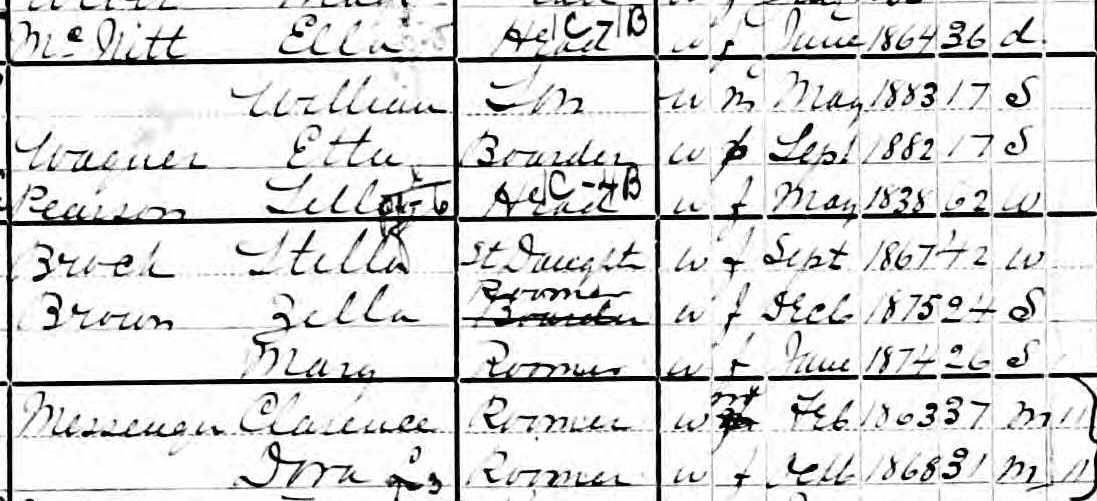 McNitt Ella Head C-7 B w f June 1864 36 d
William Son w m May 1883 17 S
Wagner Etta Boarder w f Sept 1882 17 S
Pearson Head C-4 B w f May 1838 62 w
Brock Stella St Daught w f Sept 1867 42 w
Roomer
Brown Zella Boarder w f Dec 1875 24 S
Mary Roomer w f June 1874 26 S
Messenger Clarence Roomer w m Feb 1863 37 m 11
Dora Roomer w f Feb 1868 31 m 11